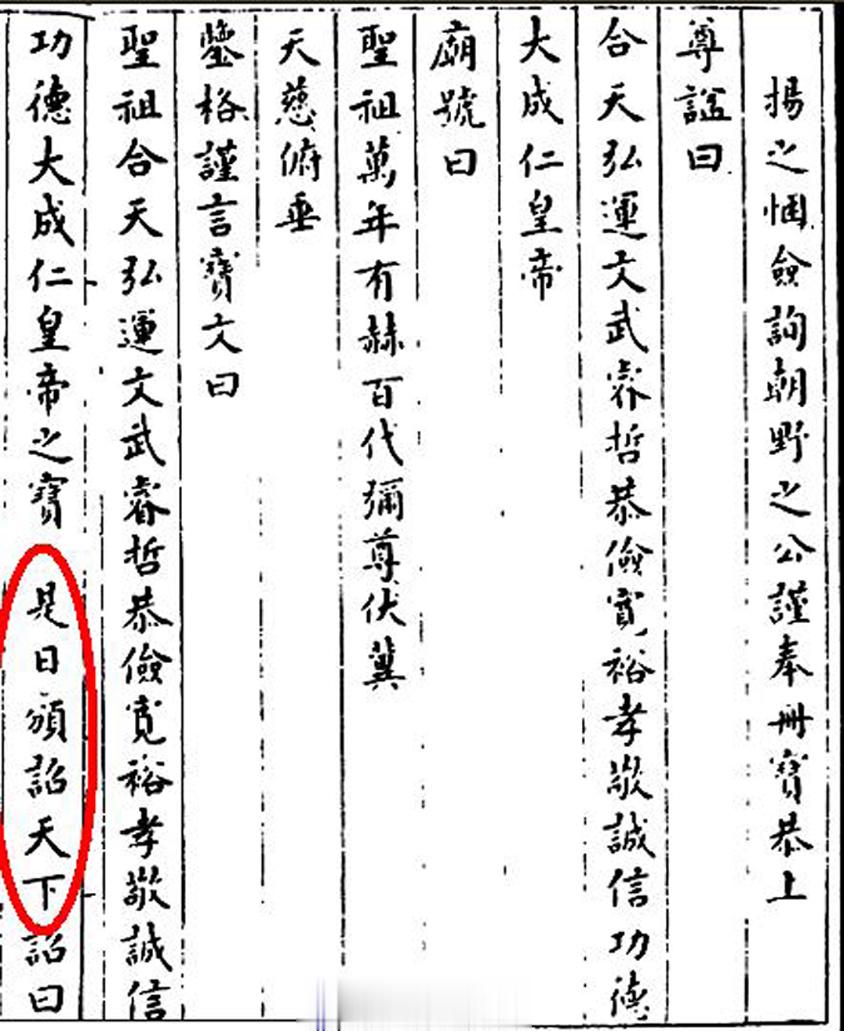 揚之悃僉詢朝野之公謹奉冊寶恭上
尊諡曰
合天弘運文武睿哲恭儉寬裕孝敬誠信功德
大成仁皇帝
廟號曰
聖祖萬年有赫百代彌尊伏冀
天慈俯垂
鑒格謹言寶文曰
聖祖合天弘運文武睿哲恭儉寬裕孝敬誠信
功德大成仁皇帝之寶 是日頒詔天下詔曰